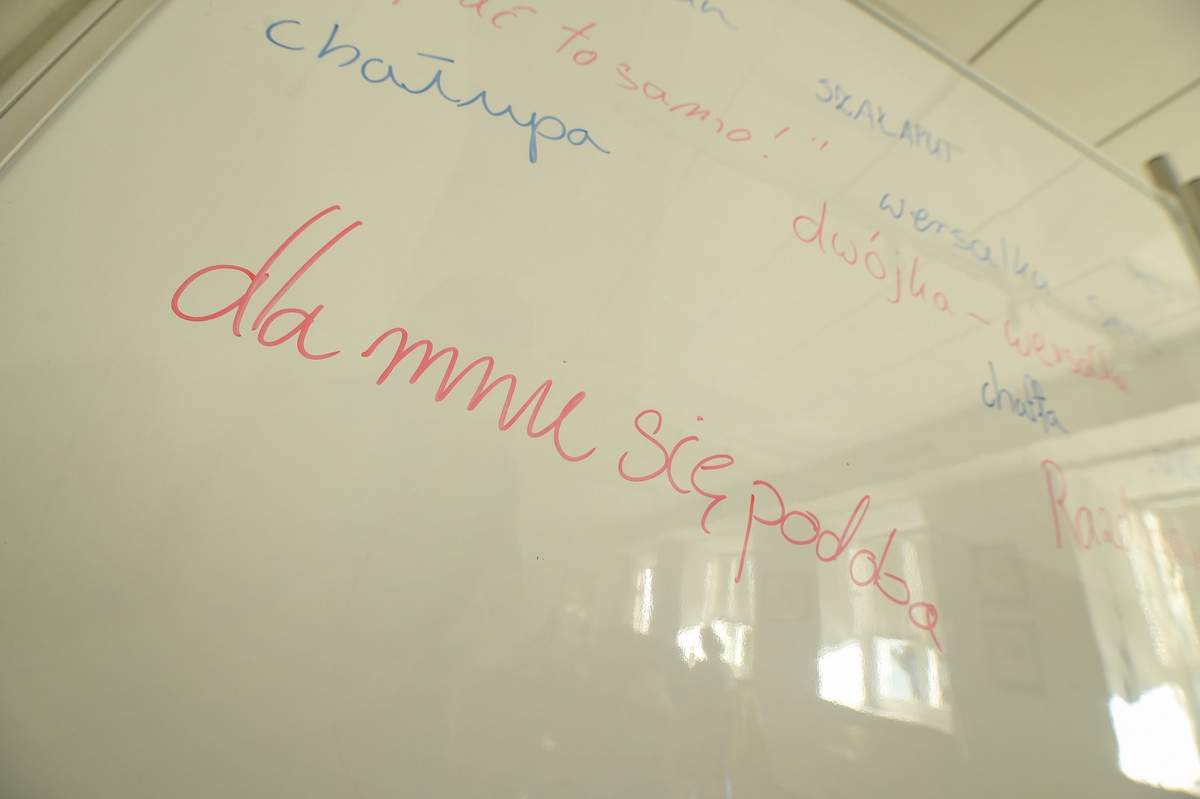 to samo!"
chałupa
SZALAPUT
wersalka
dwójka - wersalka
chałta
dla mnu się podoba